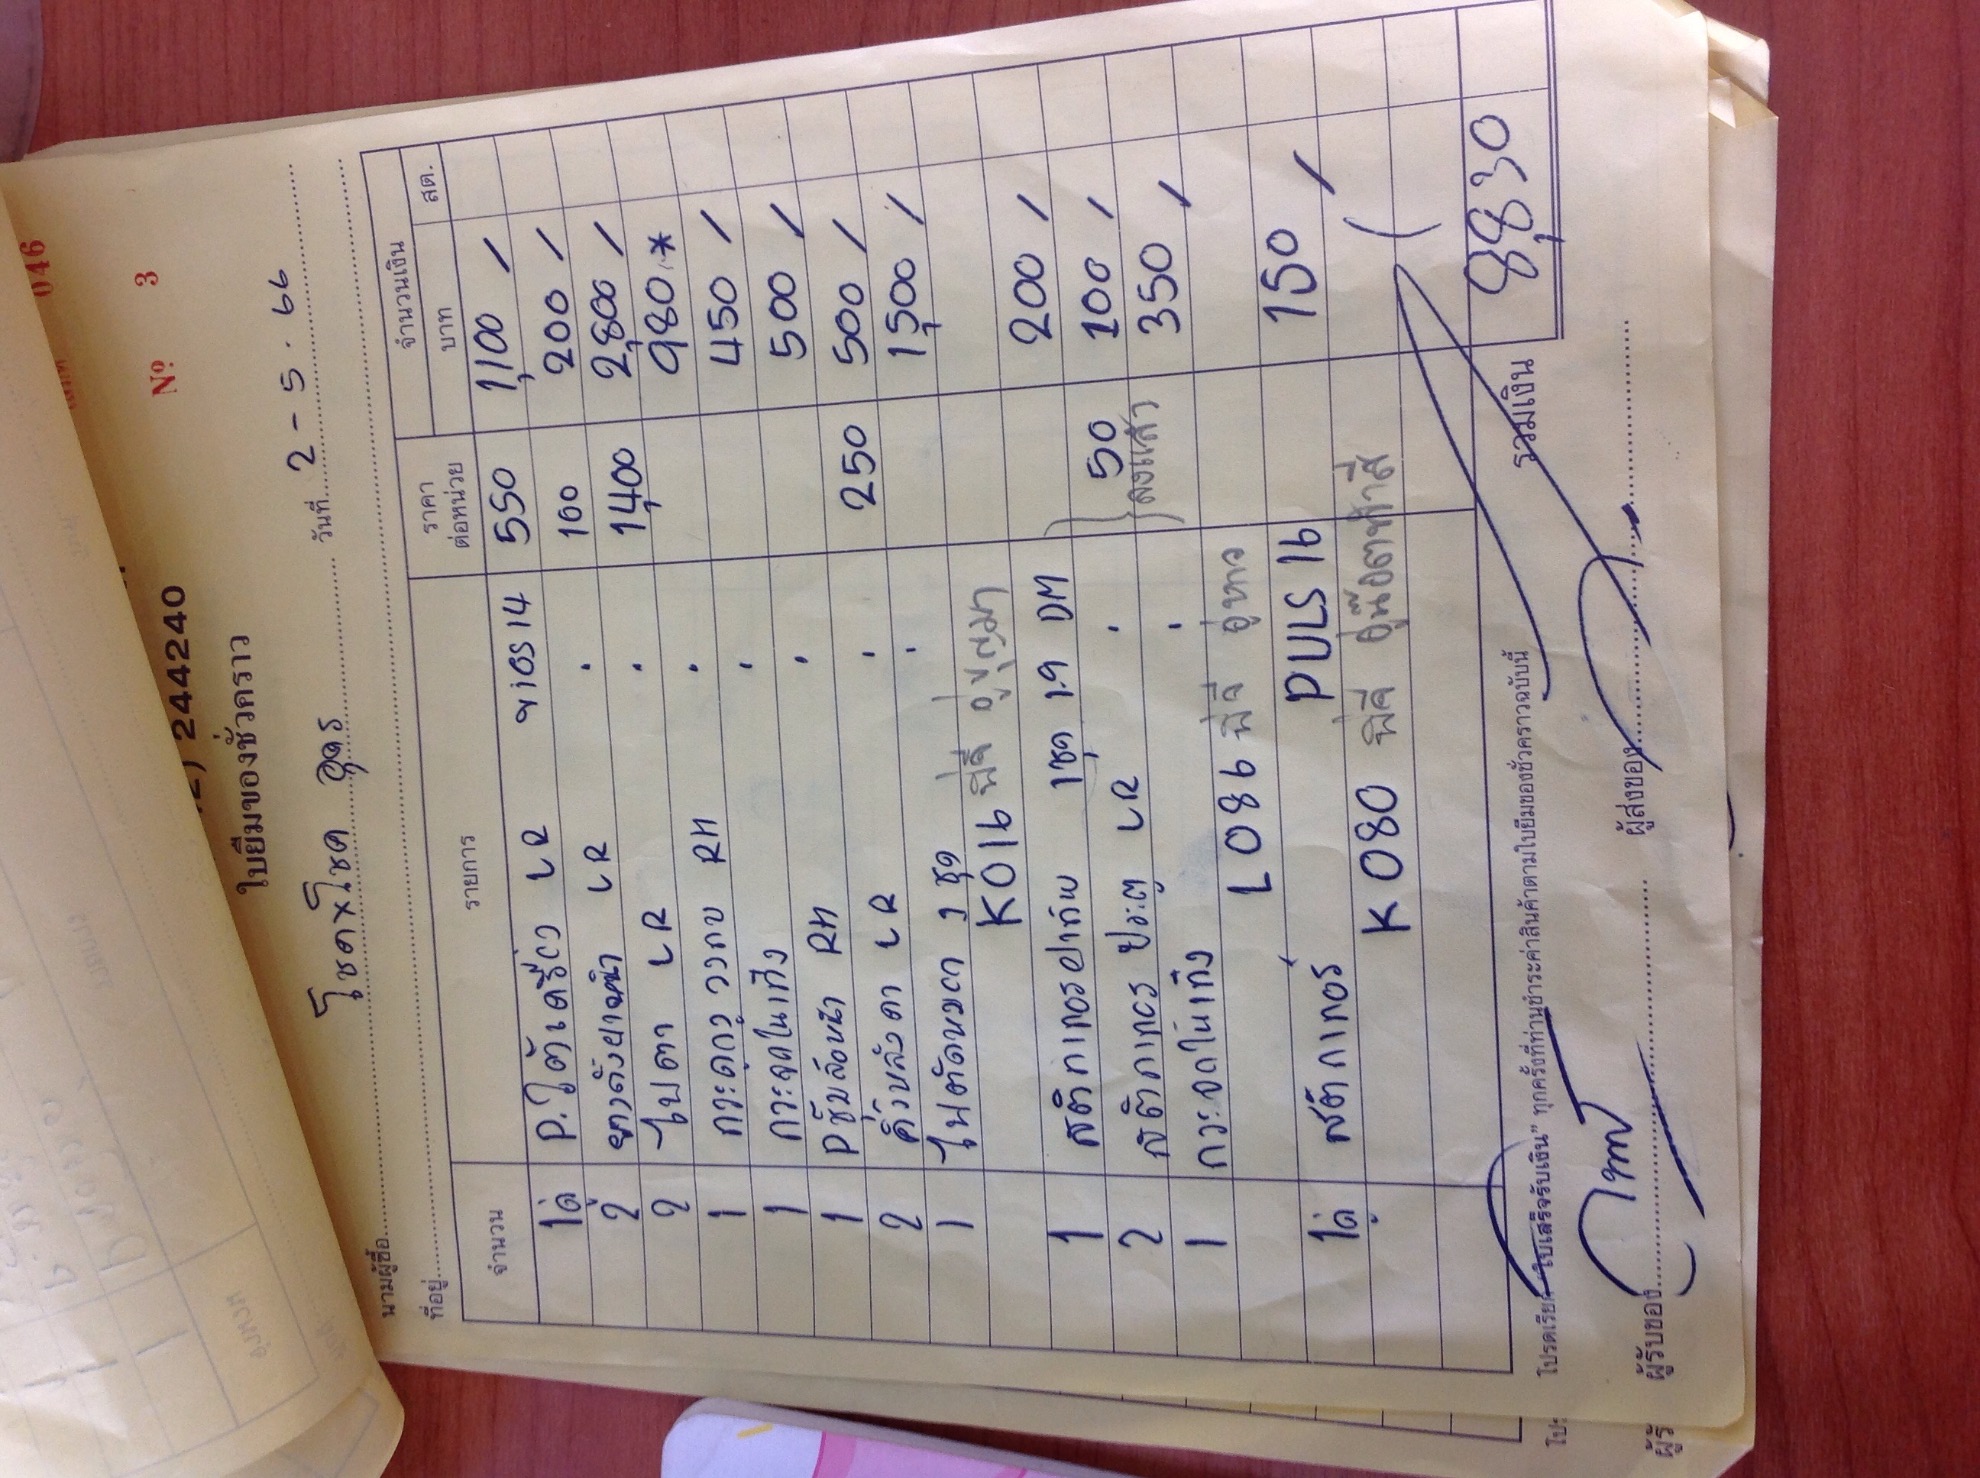 046
Nº 3
2) 244240
ใบยืมของชั่วคราว
นามผู้ซื้อ โชคxโชค อุดร วันที่ 2-5.66
ที่อยู่
จำนวน รายการ ราคาต่อหน่วย จำนวนเงิน บาท สต.
1คู่ P. ใต้เครื่อง LR vios 14 550 1,100 /
2 ยางดั้งฝาหน้า LR . 100 200 /
2 ไฟตา LR . 1,400 2,800 /
1 RH . 980 *
1 กระจกในเก๋ง . 450 /
1 Pซุ้มล้อหน้า RH . 500 /
2 คิ้วหลังคา LR . 250 500 /
1 ไฟตัดหมอก 1 ชุด . 1,500 /
K016 พี่จี
1 สติกเกอร์ฝาท้าย 1ชุด 1.9 DM 200 /
2 สติกเกอร์ ประตู LR . 50 100 /
1 กระจกในเก๋ง . ลงแล้ว 350 /
L086 พี่จี อู่
PULS 16
1คู่ สติกเกอร์ 150 /
K080 พี่จี
รวมเงิน 9,830
"ใบเสร็จรับเงิน" ทุกครั้งที่ท่านชำระค่าสินค้าตามใบยืมของชั่วคราวฉบับนี้
ผู้รับของ ผู้ส่งของ